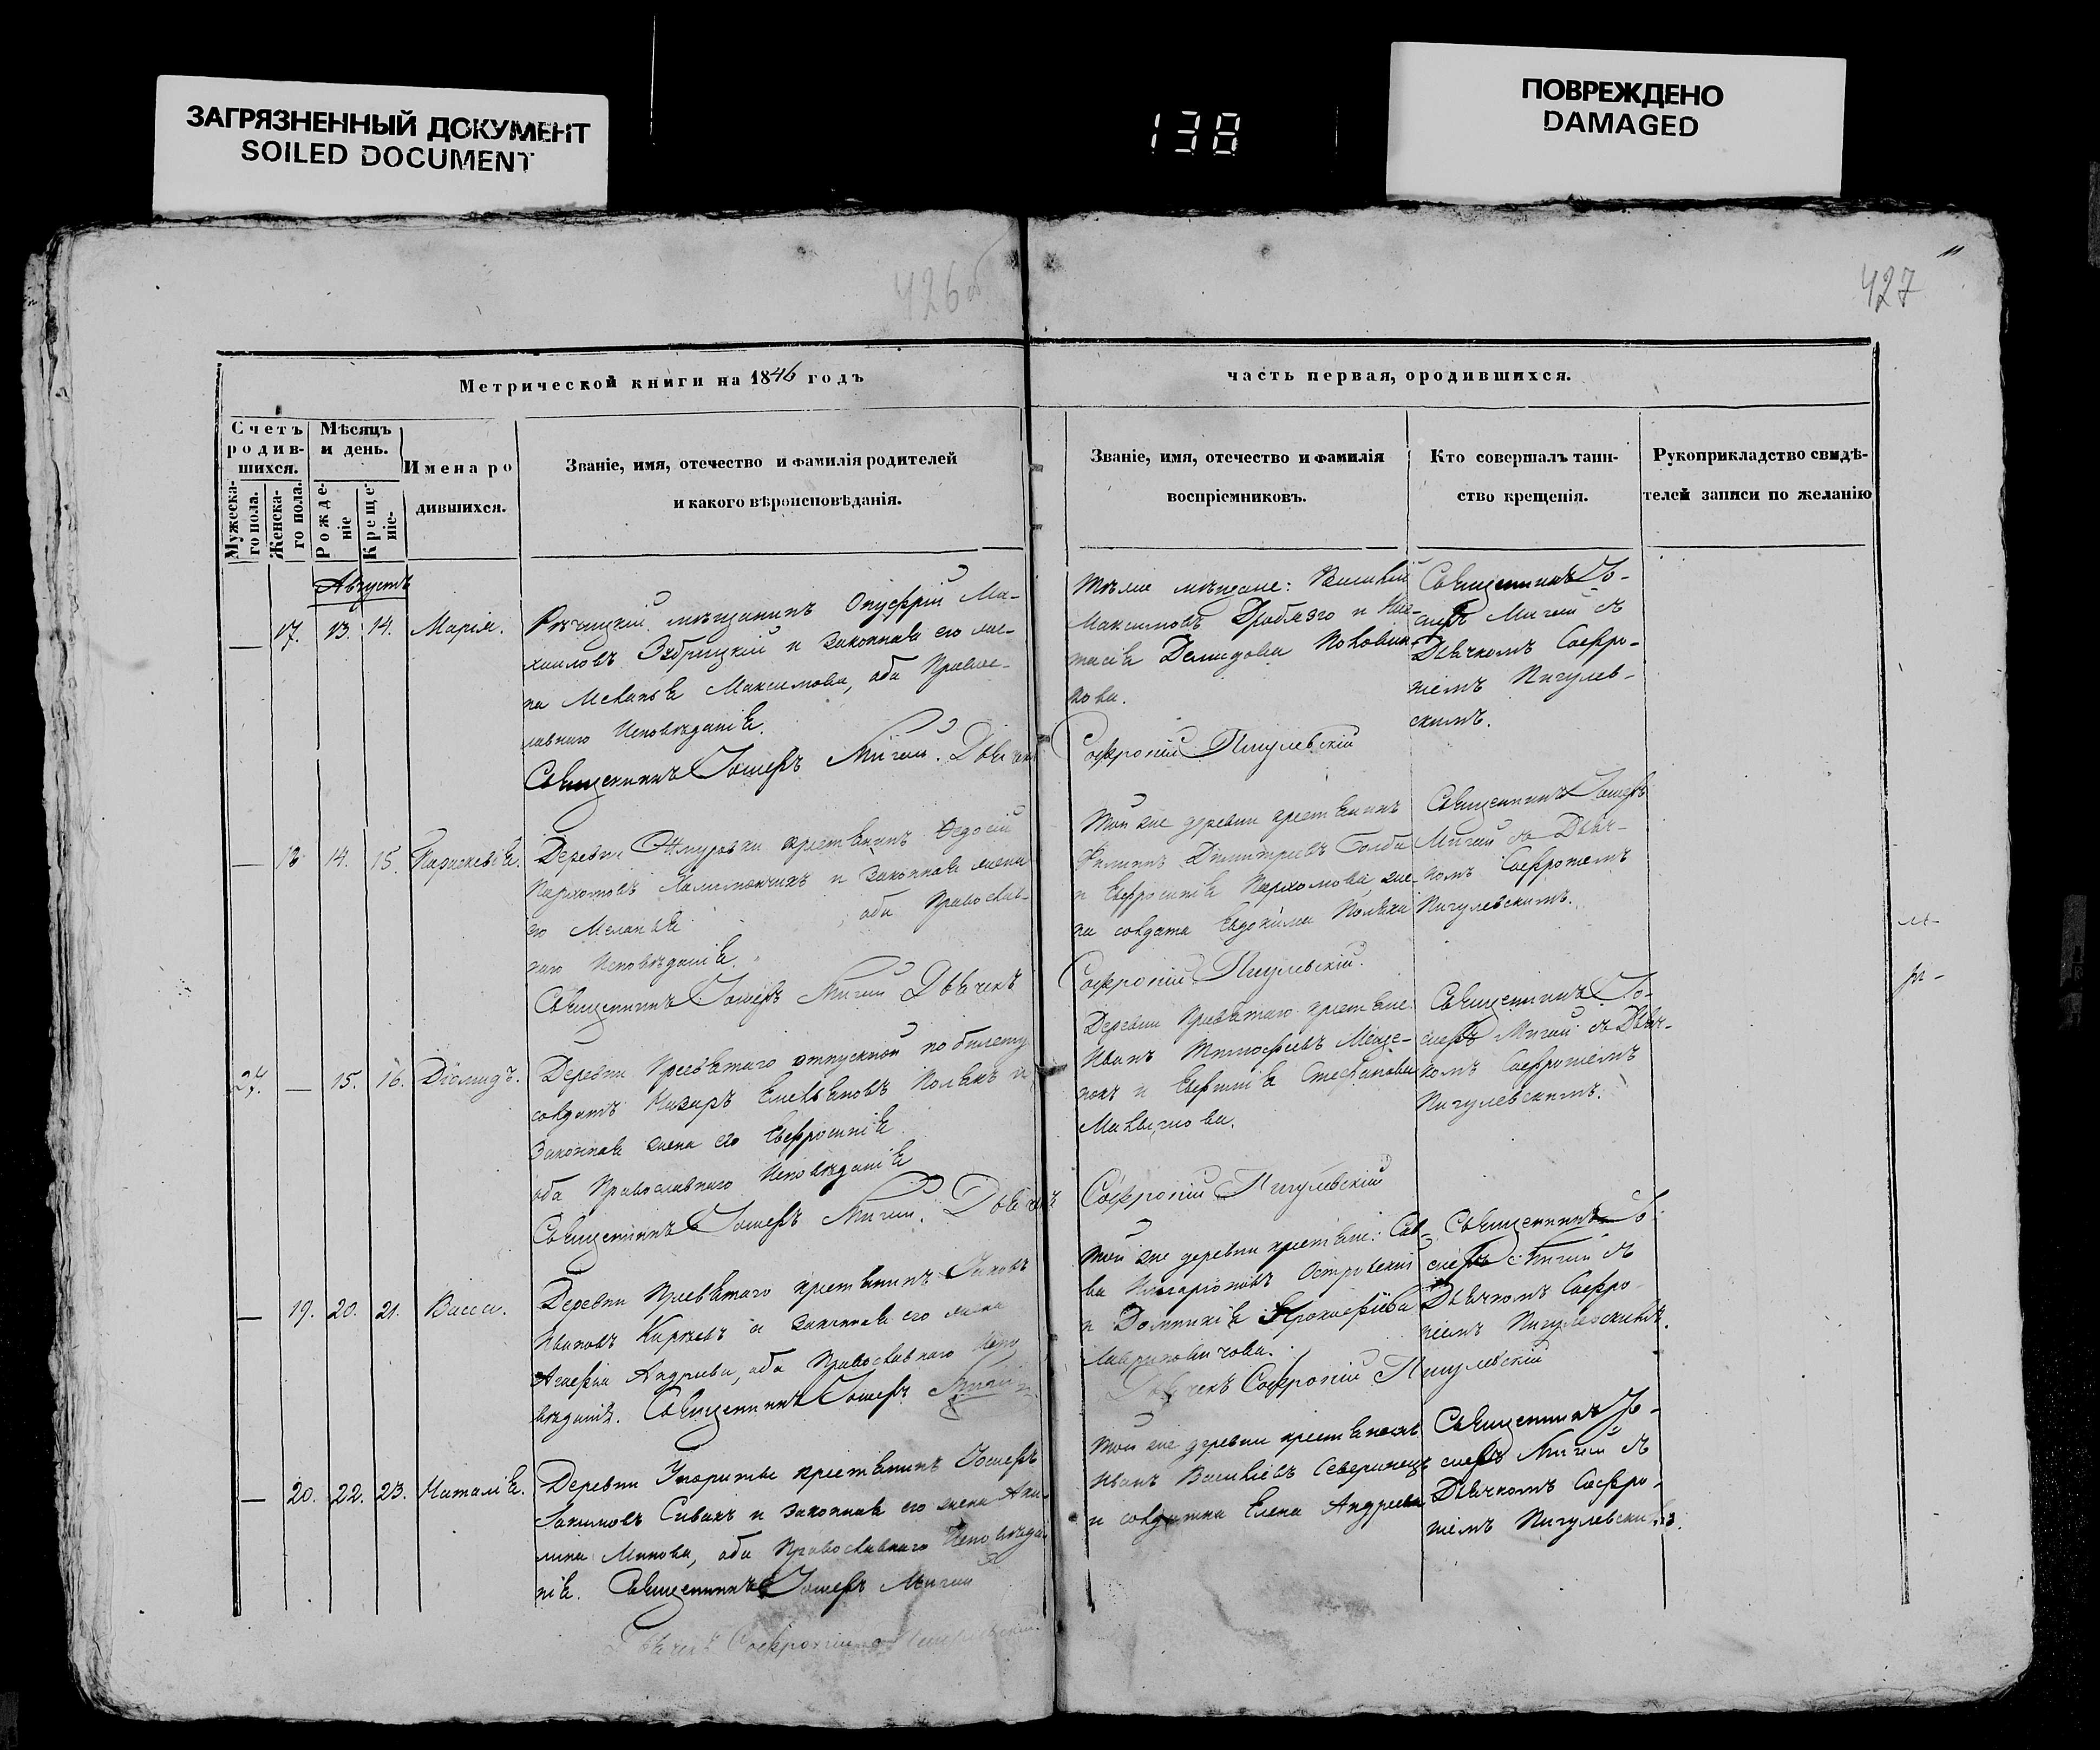 ЗАГРЯЗНЕННЫЙ ДОКУМЕНТ
SOILED DOCUMENT
138
ПОВРЕЖДЕНО
DAMAGED
426 об
427
Метрической книги на 1846 годъ
часть первая, ородившихся.
Счетъ родив-шихся.
Мужеска-го пола.
Женска-го пола.
Мѣсяцъ и день.
Рожде-ніе
Креще-ніе.
Имена ро
дившихся.
Званіе, имя, отечество и фамилія родителей
и какого вѣроисповѣданія.
Званіе, имя, отечество и фамилія
воспріемниковъ.
Кто совершалъ таин-
ство крещенія.
Рукоприкладство свидѣ-
телей записи по желанію
Августъ
— 17. 13. 14. Марія.
Рѣчицкій мѣщанинъ Онуфрій Ми-
хаиловъ и законная его же-
на Меланья Максимова, оба Правос-
лавнаго Исповѣданія.
Священникъ Іосифъ Мигай. Дьячекъ
Тѣ же мѣщане: Василій
Максимовъ Дробязго и Анас-
тасія Демидова
кова.
Софроній Пигулевскій
Священникъ Іо-
сифъ Мигай съ
Дьячкомъ Софро-
ніемъ Пигулев-
скимъ.
— 18 14. 15. Параскевія.
Деревни крестьянинъ Ѳедосій
Пархомовъ и законная жена
его Меланія, оба Православ-
наго Исповѣданія.
Священникъ Іосифъ Мигай Дьячекъ
Той же деревни крестьянинъ
Филипъ Димитріевъ
и Евфросинія Пархомова, же-
на солдата Евдокима
Софроній Пигулевскій.
Священникъ Іосифъ
Мигай съ Дьяч-
комъ Софроніемъ
Пигулевскимъ.
24. — 15. 16. Діомидъ.
Деревни отпускной по билету
солдатъ Назаръ Емельяновъ Полякъ и
законная жена его Евфросинія
оба Православнаго Исповѣданія
Священникъ Іосифъ Мигай. Дьячекъ
Деревни крестьяне:
Иванъ Тимофеевъ
и Евфимія Стефанова
Софроній Пигулевскій
Священникъ Іо-
сифъ Мигай съ Дьяч-
комъ Софроніемъ
Пигулевскимъ.
— 19. 20. 21. Васса.
Деревни крестьянинъ Іаковъ
Ивановъ и законная его жена
Агафія Андреева, оба Православнаго Испо
вѣданія. Священникъ Іосифъ Мигай
Той же деревни крестьяне: Сав-
ва Островскій
и Домникія Прокофіева
Дьячекъ Софроній Пигулевскій
Священникъ Іо-
сифъ Мигай съ
Дьячкомъ Софро-
ніемъ Пигулевскимъ.
— 20. 22. 23. Наталія.
Деревни крестьянинъ Іосифъ
Іакимовъ Сивакъ и законная его жена Аки-
лина Минова, оба Православнаго Исповѣда-
нія. Священникъ Іосифъ Мигай
Дьячекъ Софроній Пигулевскій
Той же деревни крестьянинъ
Иванъ Васильевъ Северинецъ
и солдатка Елена Андреева
Священникъ Іо-
сифъ Мигай съ
Дьячкомъ Софро-
ніемъ Пигулевскимъ.